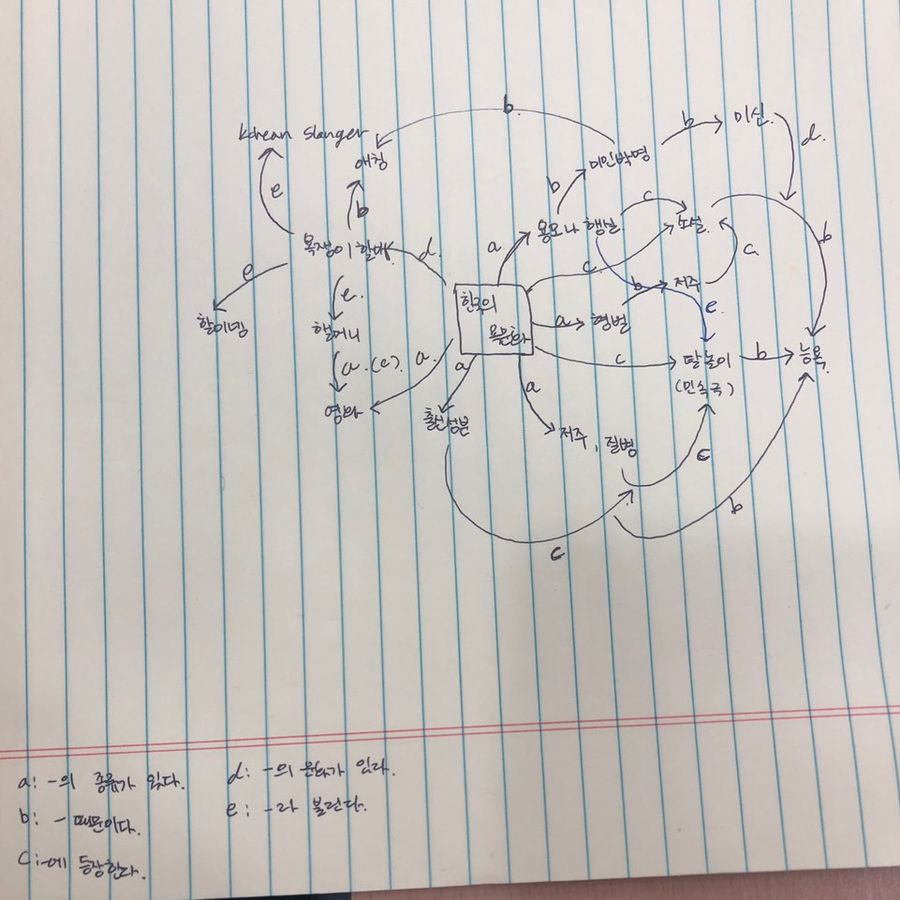 b
Korean Slanger
애칭
미인박명
b
미신.
d.
e
b
b
c
욕쟁이 할매
d.
a
용모나 행실.
소설.
b
e
e.
c
b
저주
c
한국의
욕문화
a
형벌
e.
할머니
a.(c).
a.
a
c
탈놀이
(민속극)
b
능욕.
영화
출신성분
a
저주, 질병
c
b
c
a: -의 종류가 있다.
d: -의 문화가 있다.
b: - 때문이다.
e: -라 불린다.
C: -에 등장한다.